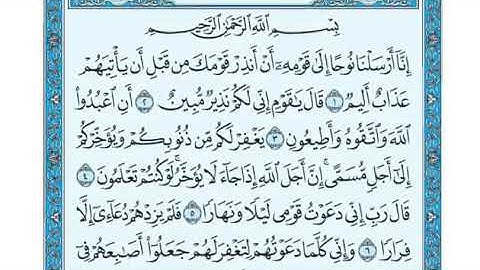 بِسْمِ اللَّهِ الرَّحْمَٰنِ الرَّحِيمِ
إِنَّا أَرْسَلْنَا نُوحًا إِلَىٰ قَوْمِهِ أَنْ أَنذِرْ قَوْمَكَ مِن قَبْلِ أَن يَأْتِيَهُمْ
عَذَابٌ أَلِيمٌ ١ قَالَ يَا قَوْمِ إِنِّي لَكُمْ نَذِيرٌ مُّبِينٌ ٢ أَنِ اعْبُدُوا
اللَّهَ وَاتَّقُوهُ وَأَطِيعُونِ ٣ يَغْفِرْ لَكُم مِّن ذُنُوبِكُمْ وَيُؤَخِّرْكُمْ
إِلَىٰ أَجَلٍ مُّسَمًّى ۚ إِنَّ أَجَلَ اللَّهِ إِذَا جَاءَ لَا يُؤَخَّرُ ۖ لَوْ كُنتُمْ تَعْلَمُونَ ٤
قَالَ رَبِّ إِنِّي دَعَوْتُ قَوْمِي لَيْلًا وَنَهَارًا ٥ فَلَمْ يَزِدْهُمْ دُعَائِي إِلَّا
فِرَارًا ٦ وَإِنِّي كُلَّمَا دَعَوْتُهُمْ لِتَغْفِرَ لَهُمْ جَعَلُوا أَصَابِعَهُمْ فِي